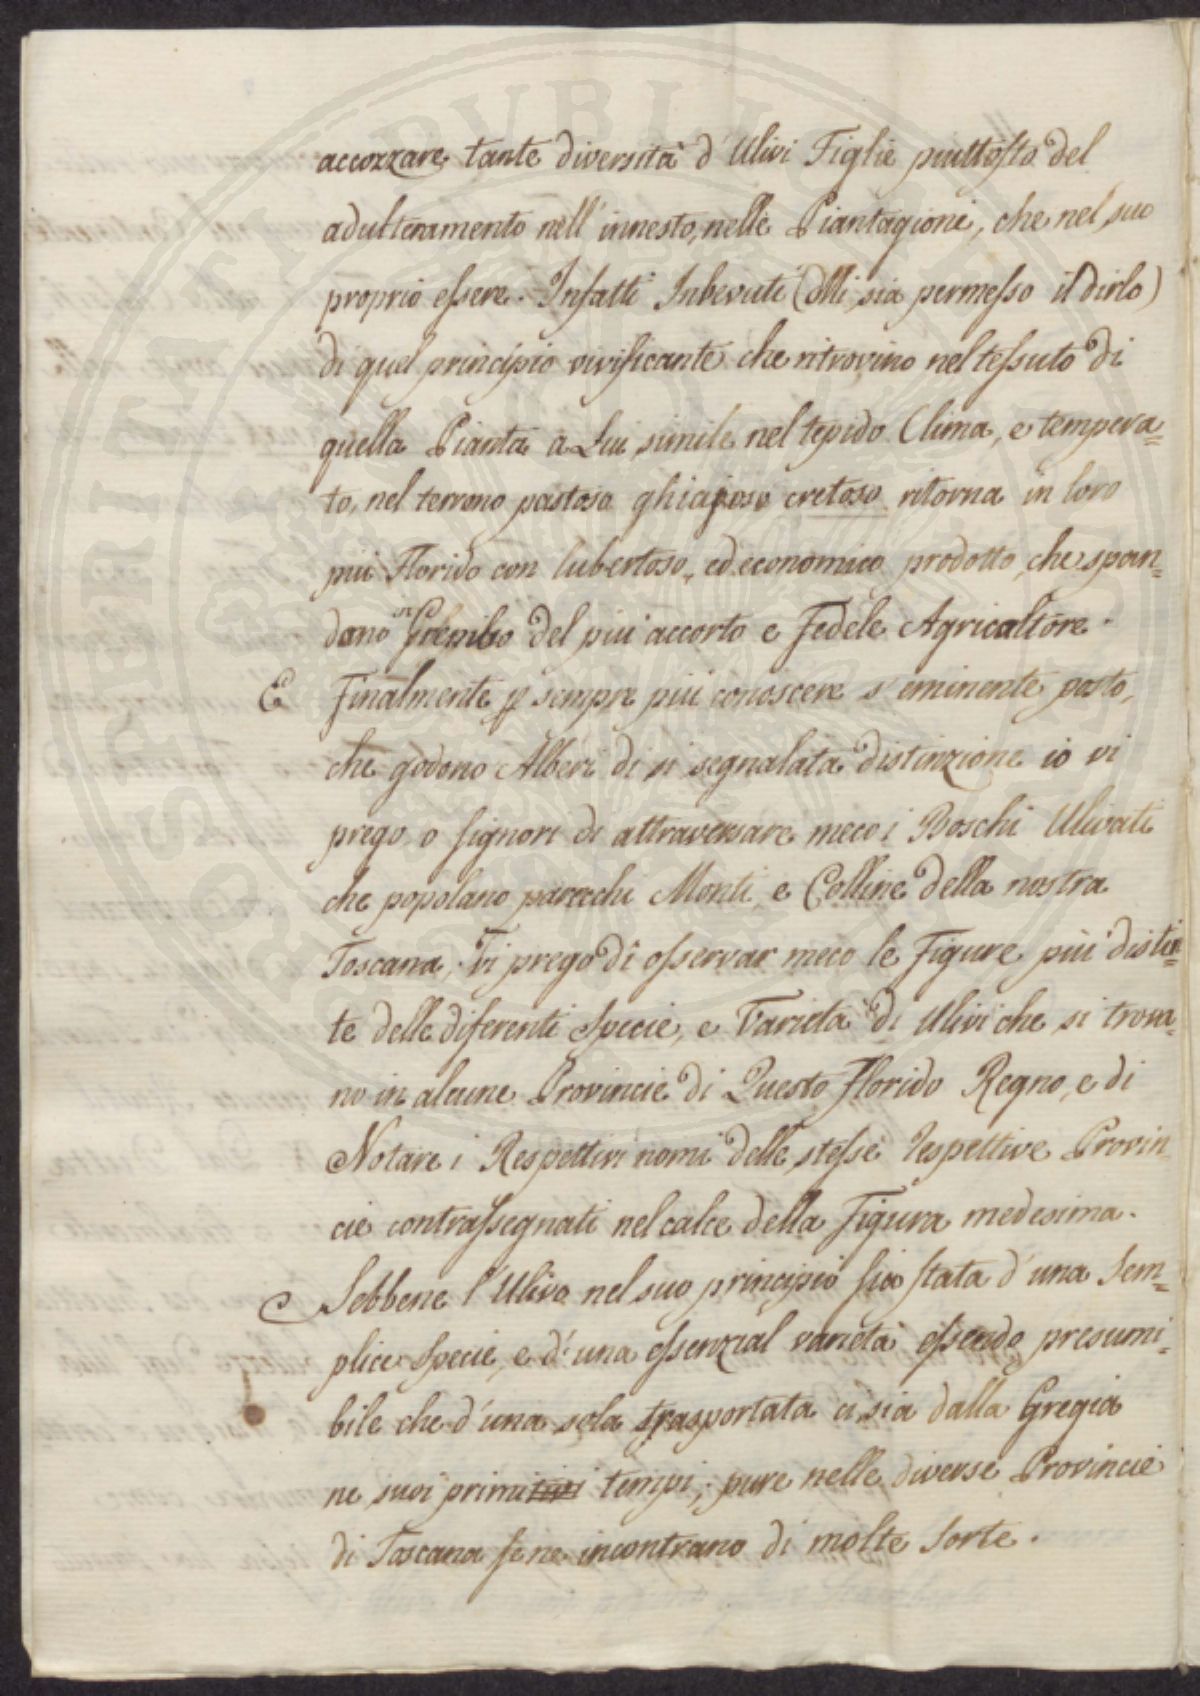 accozzare tante diversità d'Ulivi Figlie piuttosto del
adulteramento nell'innesto, nelle Piantagioni, che nel suo
proprio essere. Infatti Inbevuti (Mi sia permesso il dirlo)
di quel principio vivificante che ritrovino nel tessuto di
quella Pianta a Lui simile nel tepido Clima, e tempera=
to, nel terreno pastoso ghiajoso cretoso ritorna in loro
più Florido con lubertoso, ed economico prodotto, che span=
dono in Grembo del più accorto e Fedele Agricoltore.
E Finalmente p sempre più conoscere s'eminente posto,
che godono Alberi di si segnalata distinzione io vi
prego, o Signori di attraversare meco i Boschi Ulivati
che popolano parecchi Monti, e Colline della nostra
Toscana, Vi prego di osservar meco le Figure più distin=
te delle diferenti Specie, e Varietà di Ulivi che si trova=
no in alcune Provincie di Questo Florido Regno, e di
Notare i Respettivi nomi delle stesse respettive Provin=
cie contrassegnati nel calce della Figura medesima.
Sebbene l'Ulivo nel suo principio sia stata d'una Sem=
plice Specie, e d'una essenzial varietà essendo presumi=
bile che d'una sola trasportata ci sia dalla Gregia
ne suoi primitivi tempi; pure nelle diverse Provincie
di Toscana se ne incontrano di molte Sorte.
PROSPERITATI PUBLICAE